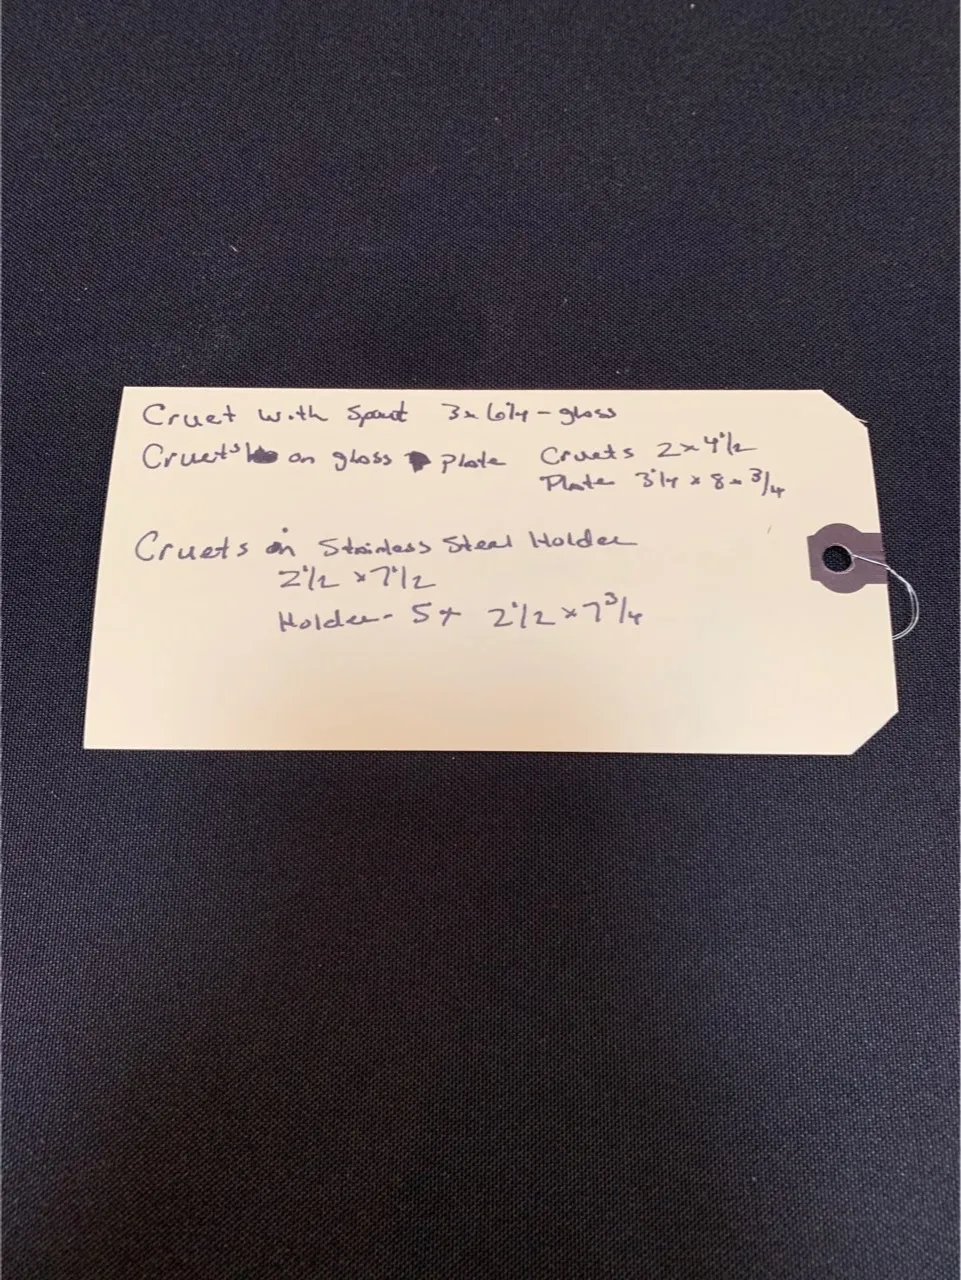 Cruet with Spout 3 x 6 1/4 - glass
Cruets on glass plate Cruets 2 x 4 1/2
Plate 3 1/4 x 8 x 3/4
Cruets in Stainless Steel Holder
2 1/2 x 7 1/2
Holder - 5 x 2 1/2 x 7 3/4